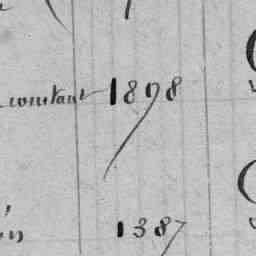 constant 1898
1387